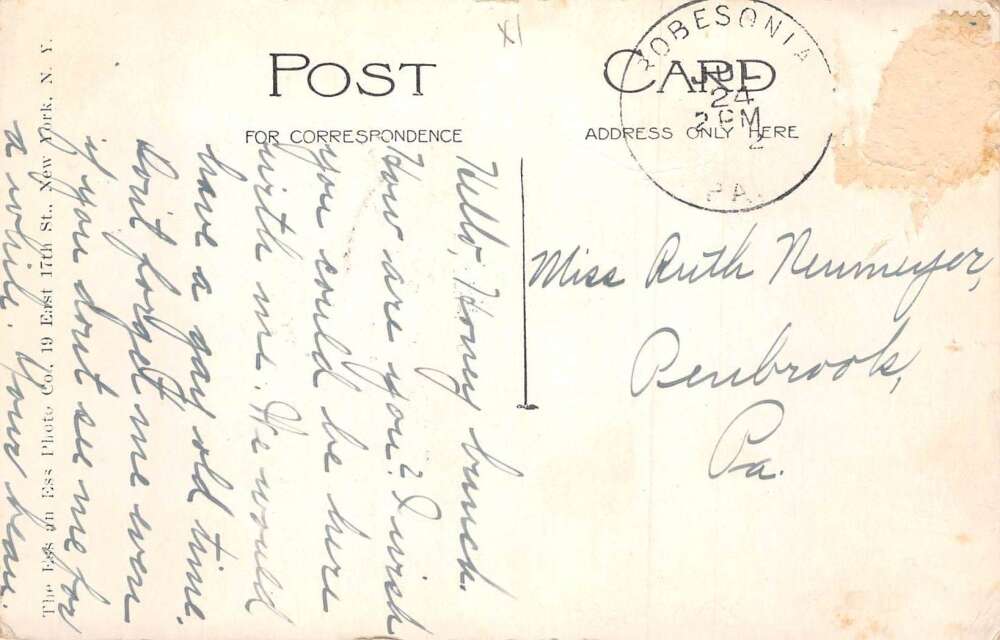 XI
POST CARD
FOR CORRESPONDENCE
ADDRESS ONLY HERE
ROBESONIA
JUL
24
2 PM
PA.
Hello, Honey bunch.
How are you? I wish
you could be here
with me. We would
have a gay old time.
Don't forget me even
if you don't see me for
a while. Your beau.
Miss Ruth Neumeyer,
Penbrook,
Pa.
The Ess an Ess Photo Co., 19 East 17th St., New York, N. Y.